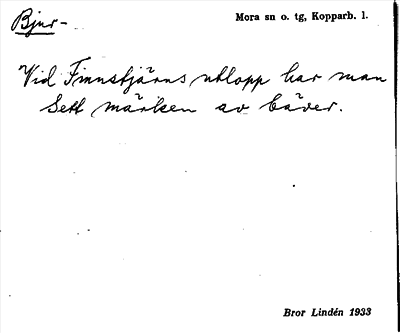 Bjur-
Mora sn o. tg, Kopparb. l.
Vid Finnstjärns utlopp har man
sett märken av bäver.
Bror Lindén 1933